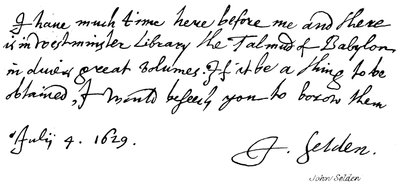 I haue much time here before me and there
is in Westminster Library the Talmud of Babylon
in diuers great volumes. If it be a thing to be
obtained, I would beseech you to borow them
July 4. 1629.
J. Selden.
John Selden